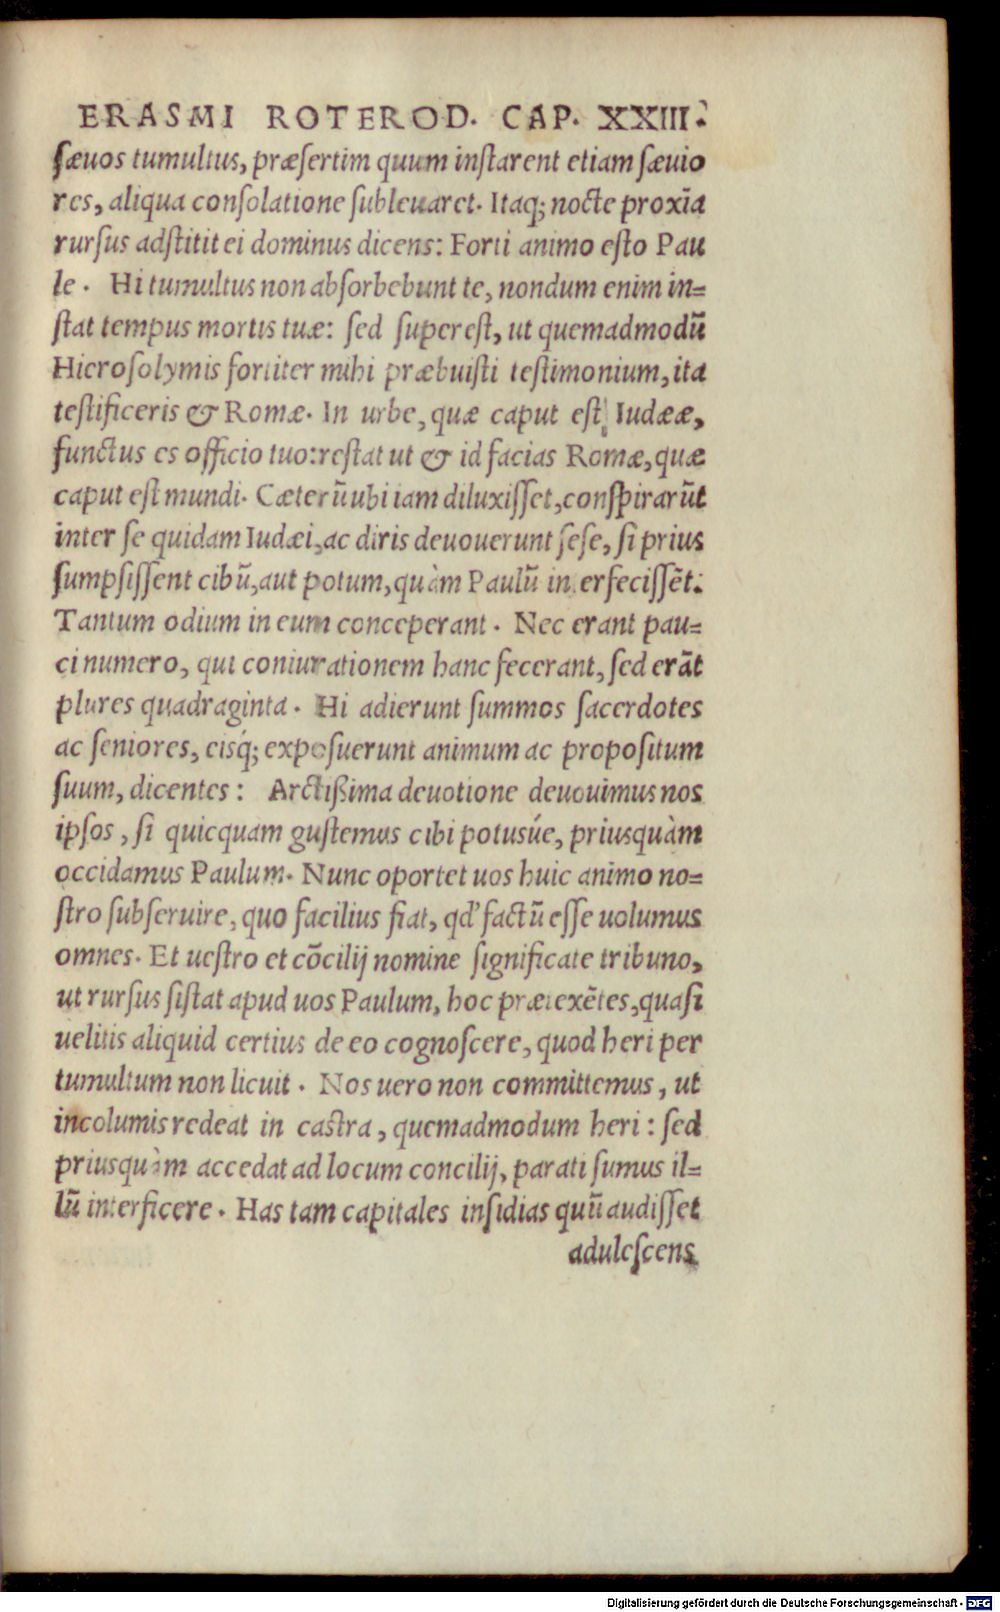 ERASMI ROTEROD. CAP. XXIII.
sæuos tumultus, præsertim quum instarent etiam sæuio
res, aliqua consolatione subleuaret. Itaq; nocte proxīa
rursus adstitit ei dominus dicens: Forti animo esto Pau
le. Hi tumultus non absorbebunt te, nondum enim in=
stat tempus mortis tuæ: sed superest, ut quemadmodū
Hierosolymis fortiter mihi præbuisti testimonium, ita
testificeris & Romæ. In urbe, quæ caput est Iudææ,
functus es officio tuo: restat ut & id facias Romæ, quæ
caput est mundi. Cæterū ubi iam diluxisset, conspirarūt
inter se quidam Iudæi, ac diris deuouerunt sese, si prius
sumpsissent cibū, aut potum, quàm Paulū interfecissēt.
Tantum odium in eum conceperant. Nec erant pau=
ci numero, qui coniurationem hanc fecerant, sed erāt
plures quadraginta. Hi adierunt summos sacerdotes
ac seniores, eisq́; exposuerunt animum ac propositum
suum, dicentes: Arctißima deuotione deuouimus nos
ipsos, si quicquam gustemus cibi potusúe, priusquàm
occidamus Paulum. Nunc oportet uos huic animo no=
stro subseruire, quo facilius fiat, qd' factū esse uolumus
omnes. Et uestro et cōcilij nomine significate tribuno,
ut rursus sistat apud uos Paulum, hoc prætexētes, quasi
uelitis aliquid certius de eo cognoscere, quod heri per
tumultum non licuit. Nos uero non committemus, ut
incolumis redeat in castra, quemadmodum heri: sed
priusquàm accedat ad locum concilij, parati sumus il=
lū interficere. Has tam capitales insidias quū audisset
adulescens
Digitalisierung gefördert durch die Deutsche Forschungsgemeinschaft - DFG